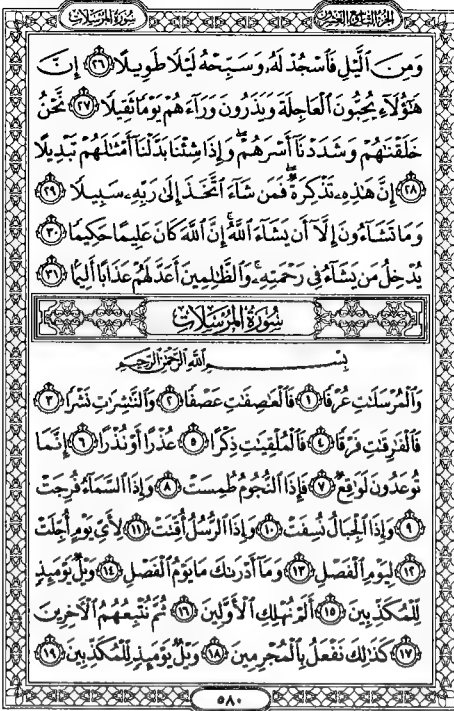 سُورَةُ المُرْسَلَات الجُزءُ التَّاسِعُ وَالعِشْرُونَ
وَمِنَ ٱلَّيْلِ فَٱسْجُدْ لَهُۥ وَسَبِّحْهُ لَيْلًا طَوِيلًا ٢٦ إِنَّ
هَٰٓؤُلَآءِ يُحِبُّونَ ٱلْعَاجِلَةَ وَيَذَرُونَ وَرَآءَهُمْ يَوْمًا ثَقِيلًا ٢٧ نَّحْنُ
خَلَقْنَٰهُمْ وَشَدَدْنَآ أَسْرَهُمْ ۖ وَإِذَا شِئْنَا بَدَّلْنَآ أَمْثَٰلَهُمْ تَبْدِيلًا
٢٨ إِنَّ هَٰذِهِۦ تَذْكِرَةٌ ۖ فَمَن شَآءَ ٱتَّخَذَ إِلَىٰ رَبِّهِۦ سَبِيلًا ٢٩
وَمَا تَشَآءُونَ إِلَّآ أَن يَشَآءَ ٱللَّهُ ۚ إِنَّ ٱللَّهَ كَانَ عَلِيمًا حَكِيمًا ٣٠
يُدْخِلُ مَن يَشَآءُ فِى رَحْمَتِهِۦ ۚ وَٱلظَّٰلِمِينَ أَعَدَّ لَهُمْ عَذَابًا أَلِيمًۢا ٣١
سُورَةُ المُرْسَلَات
بِسْمِ ٱللَّهِ ٱلرَّحْمَٰنِ ٱلرَّحِيمِ
وَٱلْمُرْسَلَٰتِ عُرْفًا ١ فَٱلْعَٰصِفَٰتِ عَصْفًا ٢ وَٱلنَّٰشِرَٰتِ نَشْرًا ٣
فَٱلْفَٰرِقَٰتِ فَرْقًا ٤ فَٱلْمُلْقِيَٰتِ ذِكْرًا ٥ عُذْرًا أَوْ نُذْرًا ٦ إِنَّمَا
تُوعَدُونَ لَوَٰقِعٌ ٧ فَإِذَا ٱلنُّجُومُ طُمِسَتْ ٨ وَإِذَا ٱلسَّمَآءُ فُرِجَتْ
٩ وَإِذَا ٱلْجِبَالُ نُسِفَتْ ١٠ وَإِذَا ٱلرُّسُلُ أُقِّتَتْ ١١ لِأَىِّ يَوْمٍ أُجِّلَتْ
١٢ لِيَوْمِ ٱلْفَصْلِ ١٣ وَمَآ أَدْرَىٰكَ مَا يَوْمُ ٱلْفَصْلِ ١٤ وَيْلٌ يَوْمَئِذٍ
لِّلْمُكَذِّبِينَ ١٥ أَلَمْ نُهْلِكِ ٱلْأَوَّلِينَ ١٦ ثُمَّ نُتْبِعُهُمُ ٱلْءَاخِرِينَ
١٧ كَذَٰلِكَ نَفْعَلُ بِٱلْمُجْرِمِينَ ١٨ وَيْلٌ يَوْمَئِذٍ لِّلْمُكَذِّبِينَ ١٩
٥٨٠